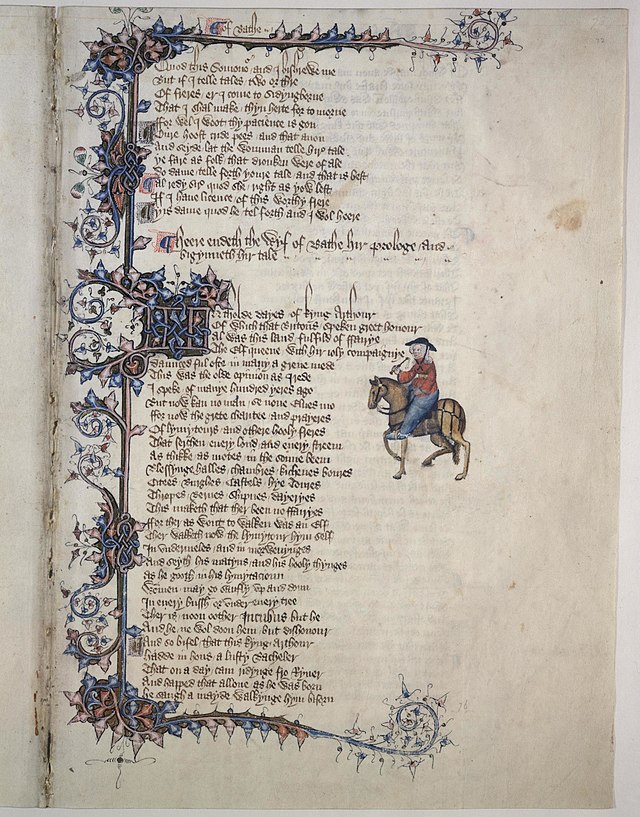 Of Bathe
Quod this Somono and I bishrewe me
But if I telle tales two or thre
Of freres er I come to Sidyngborne
That I shal make thyn herte for to morne
ffor wel I woot thy pacience is gon
Oure hoost cride pees and that anon
And seyde lat the womman telle hir tale
ye fare as folk that dronken were of ale
Do dame telle forth youre tale and that is best
Al redy sir quod she right as yow lest
If I haue licence of this worthy frere
yis dame quod he tel forth and I wol heere
Heere endeth the Wyf of Bathe hir prologe And
bigynneth hir tale
In tholde dayes of kyng Arthour
Of which that Britons speken greet honour
Al was this land fulfild of ffairye
The Elf queene with hir ioly compaignye
Daunced ful ofte in many a grene mede
This was the olde opinion as I rede
I speke of manye hundred yeres ago
But now kan no man se none Elues mo
ffor now the grete charitee and prayeres
Of lymytours and othere hooly freres
That serchen euery lond and euery streem
As thikke as motes in the sonne beem
Blessynge halles chambres kichenes boures
Citees Burghes Castels hye Toures
Thropes Bernes Shipnes dayeryes
This maketh that ther been no ffairyes
ffor ther as wont to walken was an Elf
Ther walketh now the lymytour hym self
In vndermeles and in morwenynges
And seyth his matyns and his hooly thynges
As he gooth in his lymytacioun
Wommen may go saufly vp and doun
In euery bussh or vnder euery tree
Ther is noon oother Incubus but he
And he ne wol doon hem but dishonour
And so bifel that this kyng Arthour
Hadde in hous a lusty Bacheler
That on a day cam ridynge fro Ryuer
And happed that allone as he was born
He saugh a mayde walkynge hym biforn